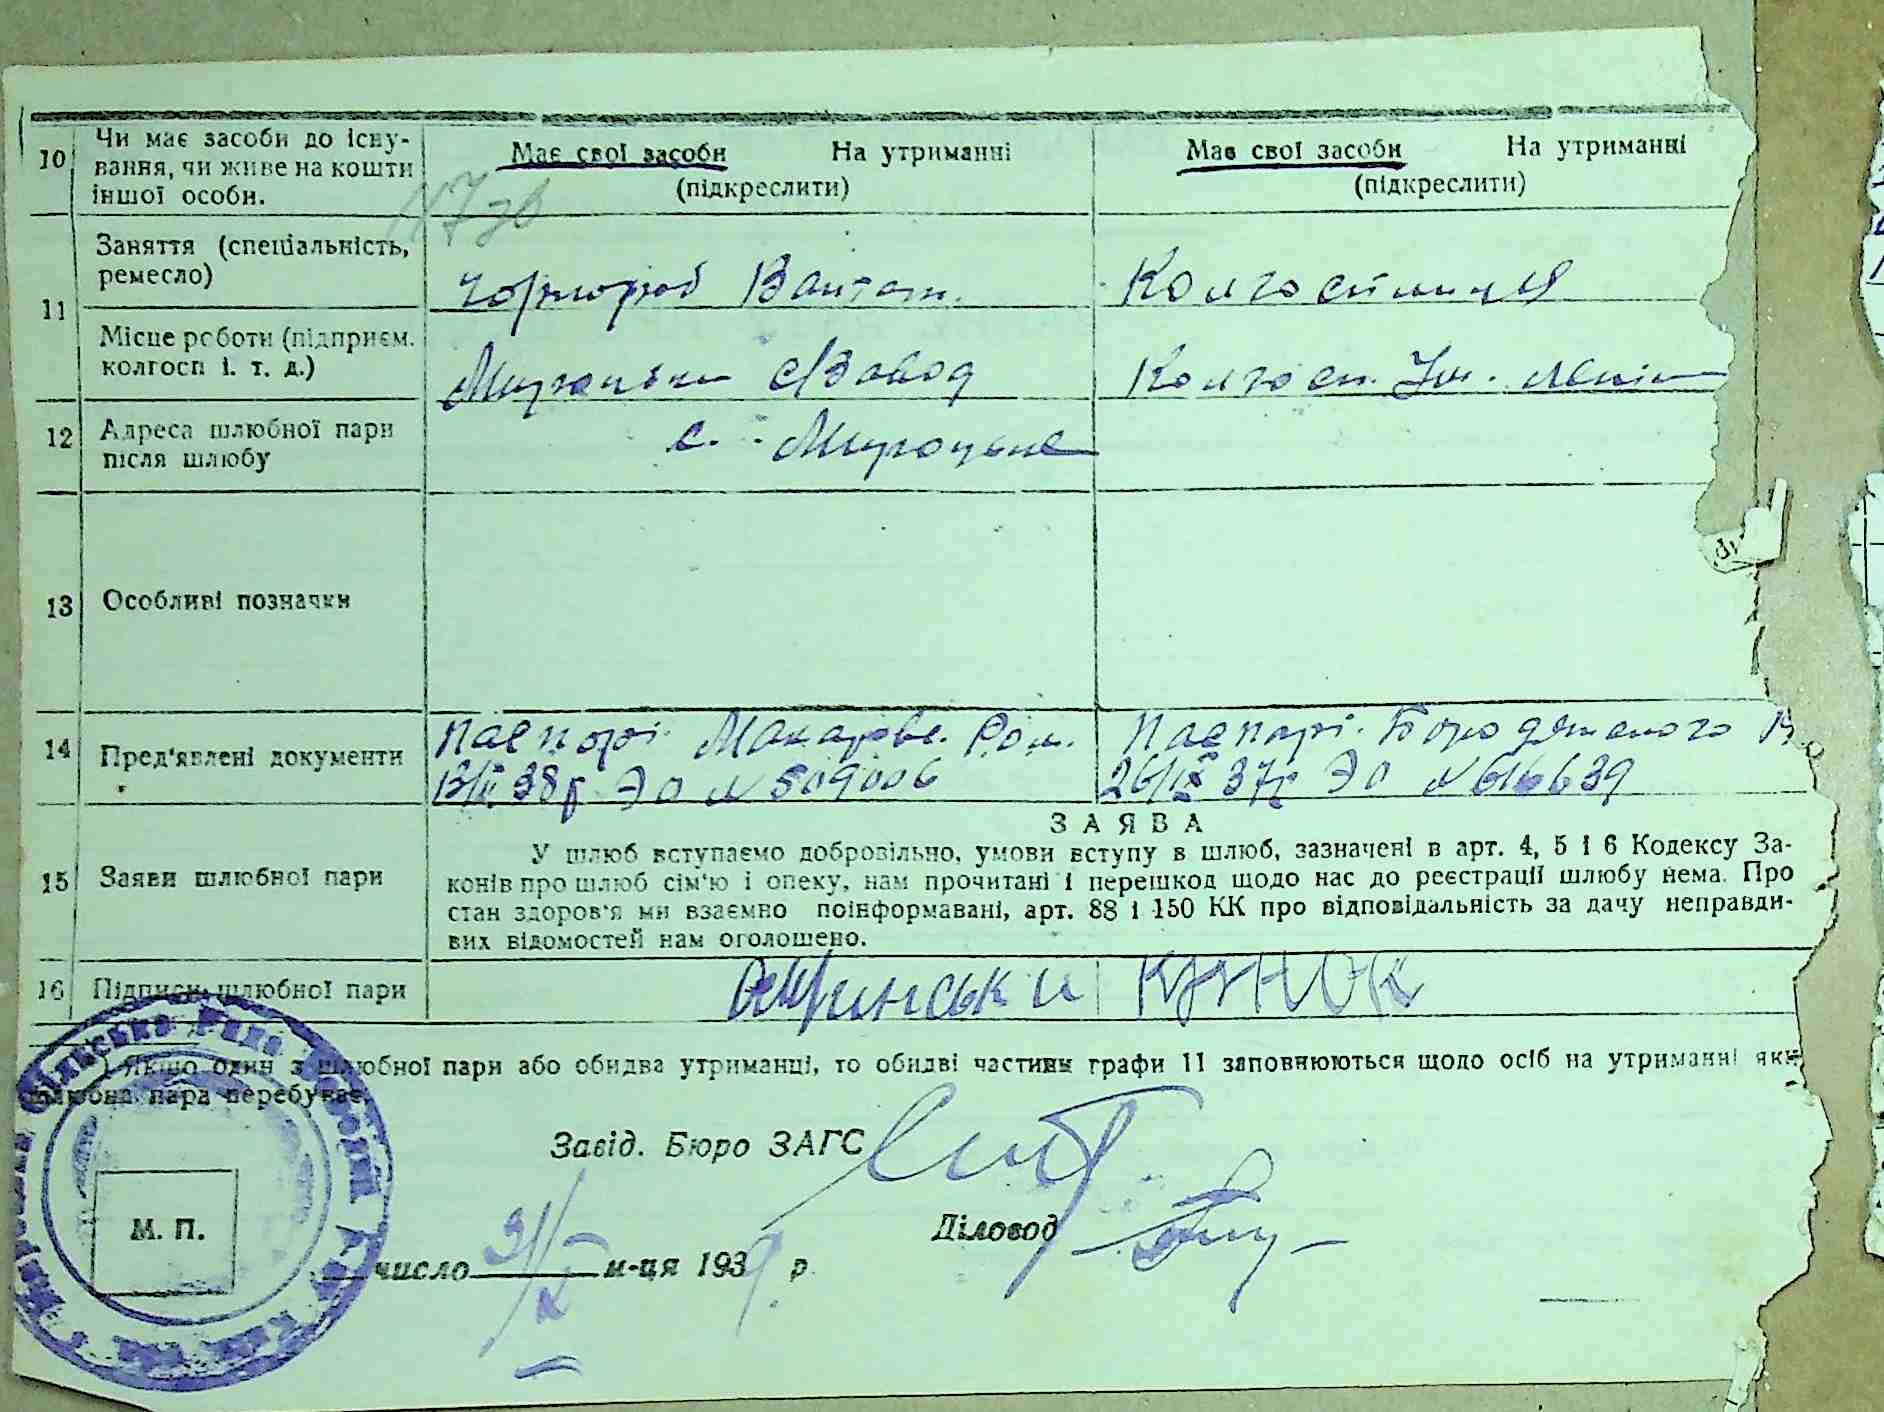 10 Чи має засоби до існу-
вання, чи живе на кошти
іншої особи.
Має свої засоби На утриманні
(підкреслити)
Має свої засоби На утриманні
(підкреслити)
11 Заняття (спеціальність,
ремесло)
Чорнороб Вантаж.
Колгоспниця
Місце роботи (підприєм.
колгосп і. т. д.)
с/Завод
Колгосп. Ім. Лєнін
12 Адреса шлюбної пари
після шлюбу
с. Мироцьке
13 Особливі позначки
14 Пред'явлені документи
Паспорт. Макарівс. Рон.
13/II 38р ЭО № 509006
Паспорт. Бородянського
26/IX 37р ЭО №
15 Заяви шлюбної пари
ЗАЯВА
У шлюб вступаємо добровільно, умови вступу в шлюб, зазначені в арт. 4, 5 і 6 Кодексу За-
конів про шлюб сім'ю і опеку, нам прочитані і перешкод щодо нас до реєстрації шлюбу нема. Про
стан здоров'я ми взаємно поінформавані, арт. 88 і 150 КК про відповідальність за дачу неправди-
вих відомостей нам оголошено.
16 Підписи шлюбної пари
) Якщо один з шлюбної пари або обидва утриманці, то обидві частини графи 11 заповнюються щодо осіб на утриманні яки
шлюбна пара перебуває.
Завід. Бюро ЗАГС
М. П.
Діловод
число м-ця 1939 р.